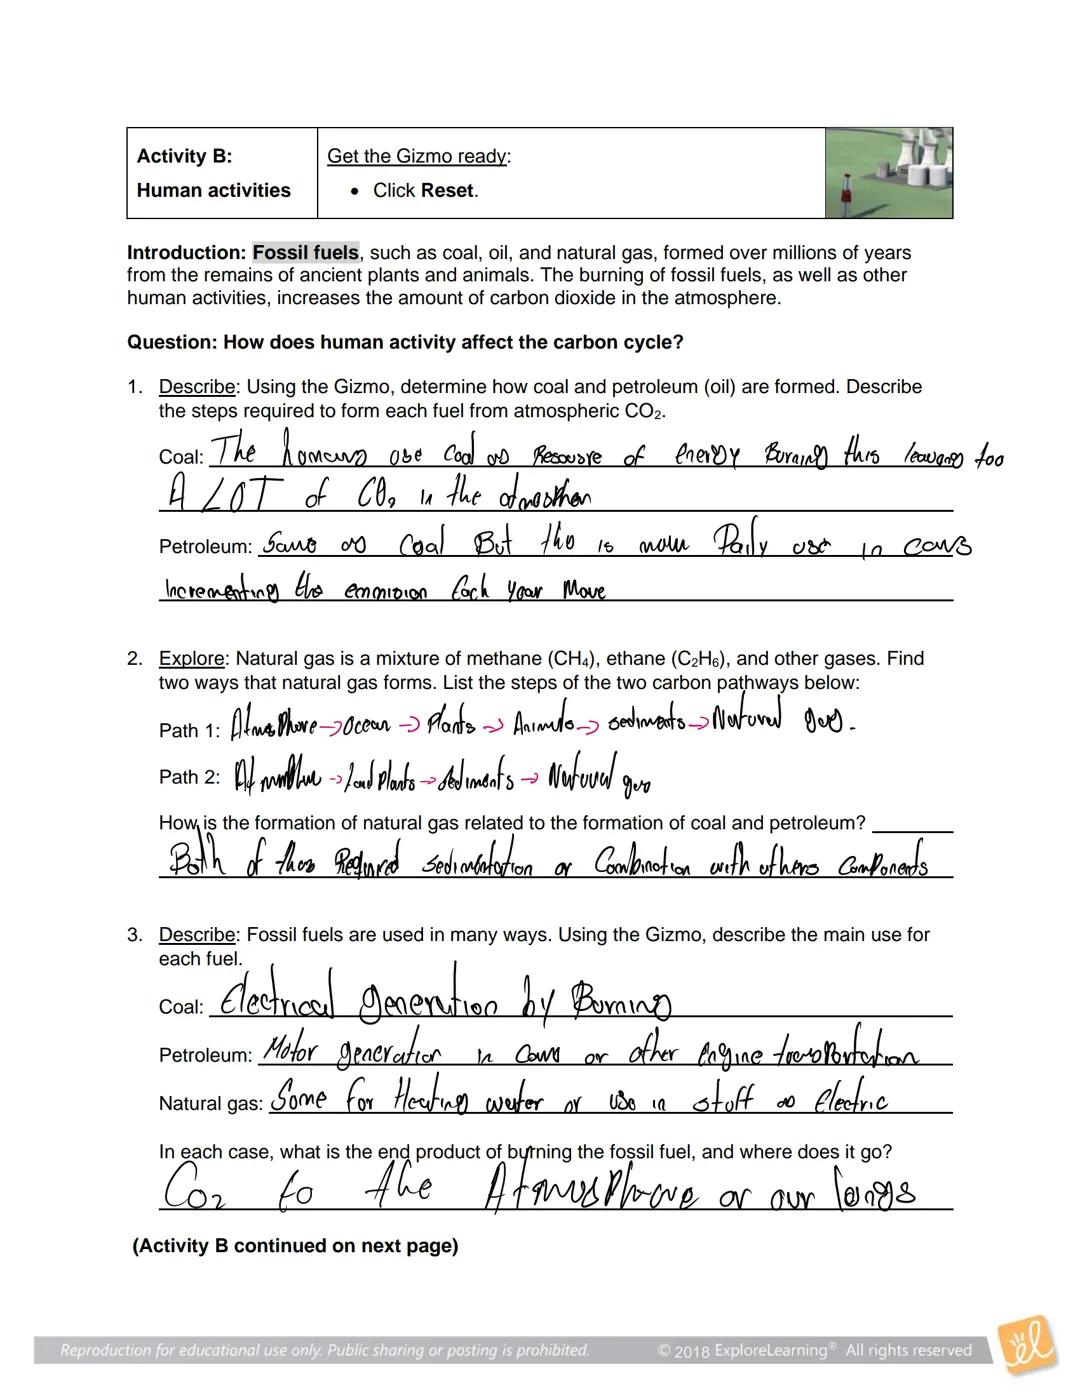 Activity B:
Human activities
Get the Gizmo ready:
• Click Reset.
Introduction: Fossil fuels, such as coal, oil, and natural gas, formed over millions of years
from the remains of ancient plants and animals. The burning of fossil fuels, as well as other
human activities, increases the amount of carbon dioxide in the atmosphere.
Question: How does human activity affect the carbon cycle?
1. Describe: Using the Gizmo, determine how coal and petroleum (oil) are formed. Describe
the steps required to form each fuel from atmospheric CO2.
Coal: The humans use Coal as Resousre of energy Burning this leaving too
A LOT of CO2 in the
Petroleum: Same as Coal But this is more Daily use in cars
Incrementing the each year More
2. Explore: Natural gas is a mixture of methane (CH4), ethane (C2H6), and other gases. Find
two ways that natural gas forms. List the steps of the two carbon pathways below:
Path 1: Atmosphere → Ocean → Plants → Animals → sediments → Natural gas.
Path 2: → Land Plants → sediments → Natural gas
How is the formation of natural gas related to the formation of coal and petroleum?
Both of them Required sedimentation or Combination with others Components
3. Describe: Fossil fuels are used in many ways. Using the Gizmo, describe the main use for
each fuel.
Coal: Electrical generation by Burning
Petroleum: Motor generation in Cars or other Engine transportation
Natural gas: Some for Heating water or use in stuff as Electric
In each case, what is the end product of burning the fossil fuel, and where does it go?
CO2 to the Atmosphere or our lungs
(Activity B continued on next page)
Reproduction for educational use only. Public sharing or posting is prohibited. © 2018 ExploreLearning® All rights reserved